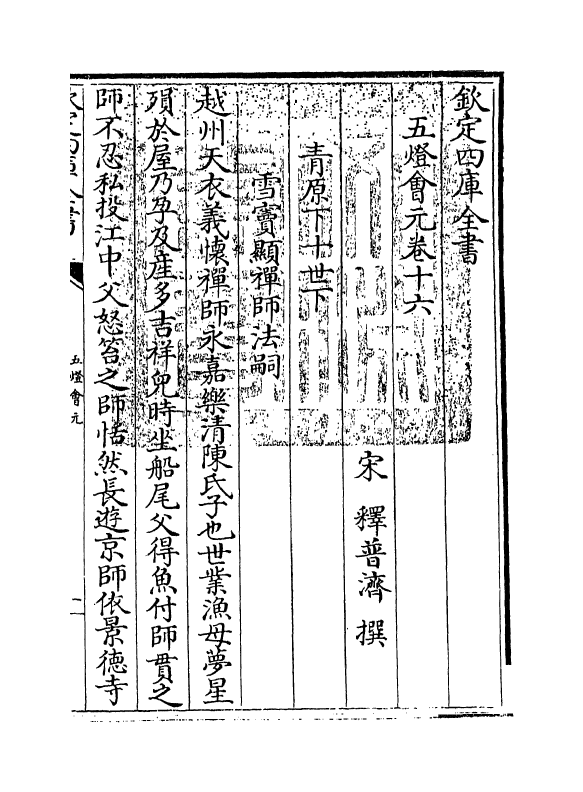 欽定四庫全書
五燈會元卷十六
宋 釋普濟 撰
青原下十世下
雪竇顯禪師法嗣
越州天衣義懷禪師永嘉樂清陳氏子也世業漁母夢星
殞於屋乃孕及產多吉祥兒時坐船尾父得魚付師貫之
師不忍私投江中父怒笞之師恬然長遊京師依景德寺
欽定四庫全書
五燈會元
二